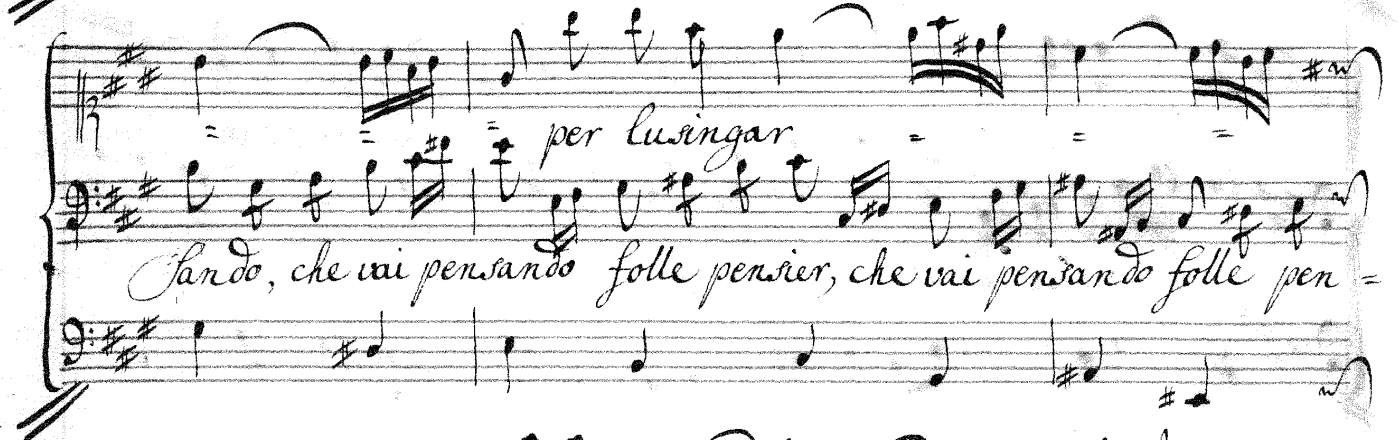 per lusingar
sando, che vai pensando folle pensier, che vai pensando folle pen =